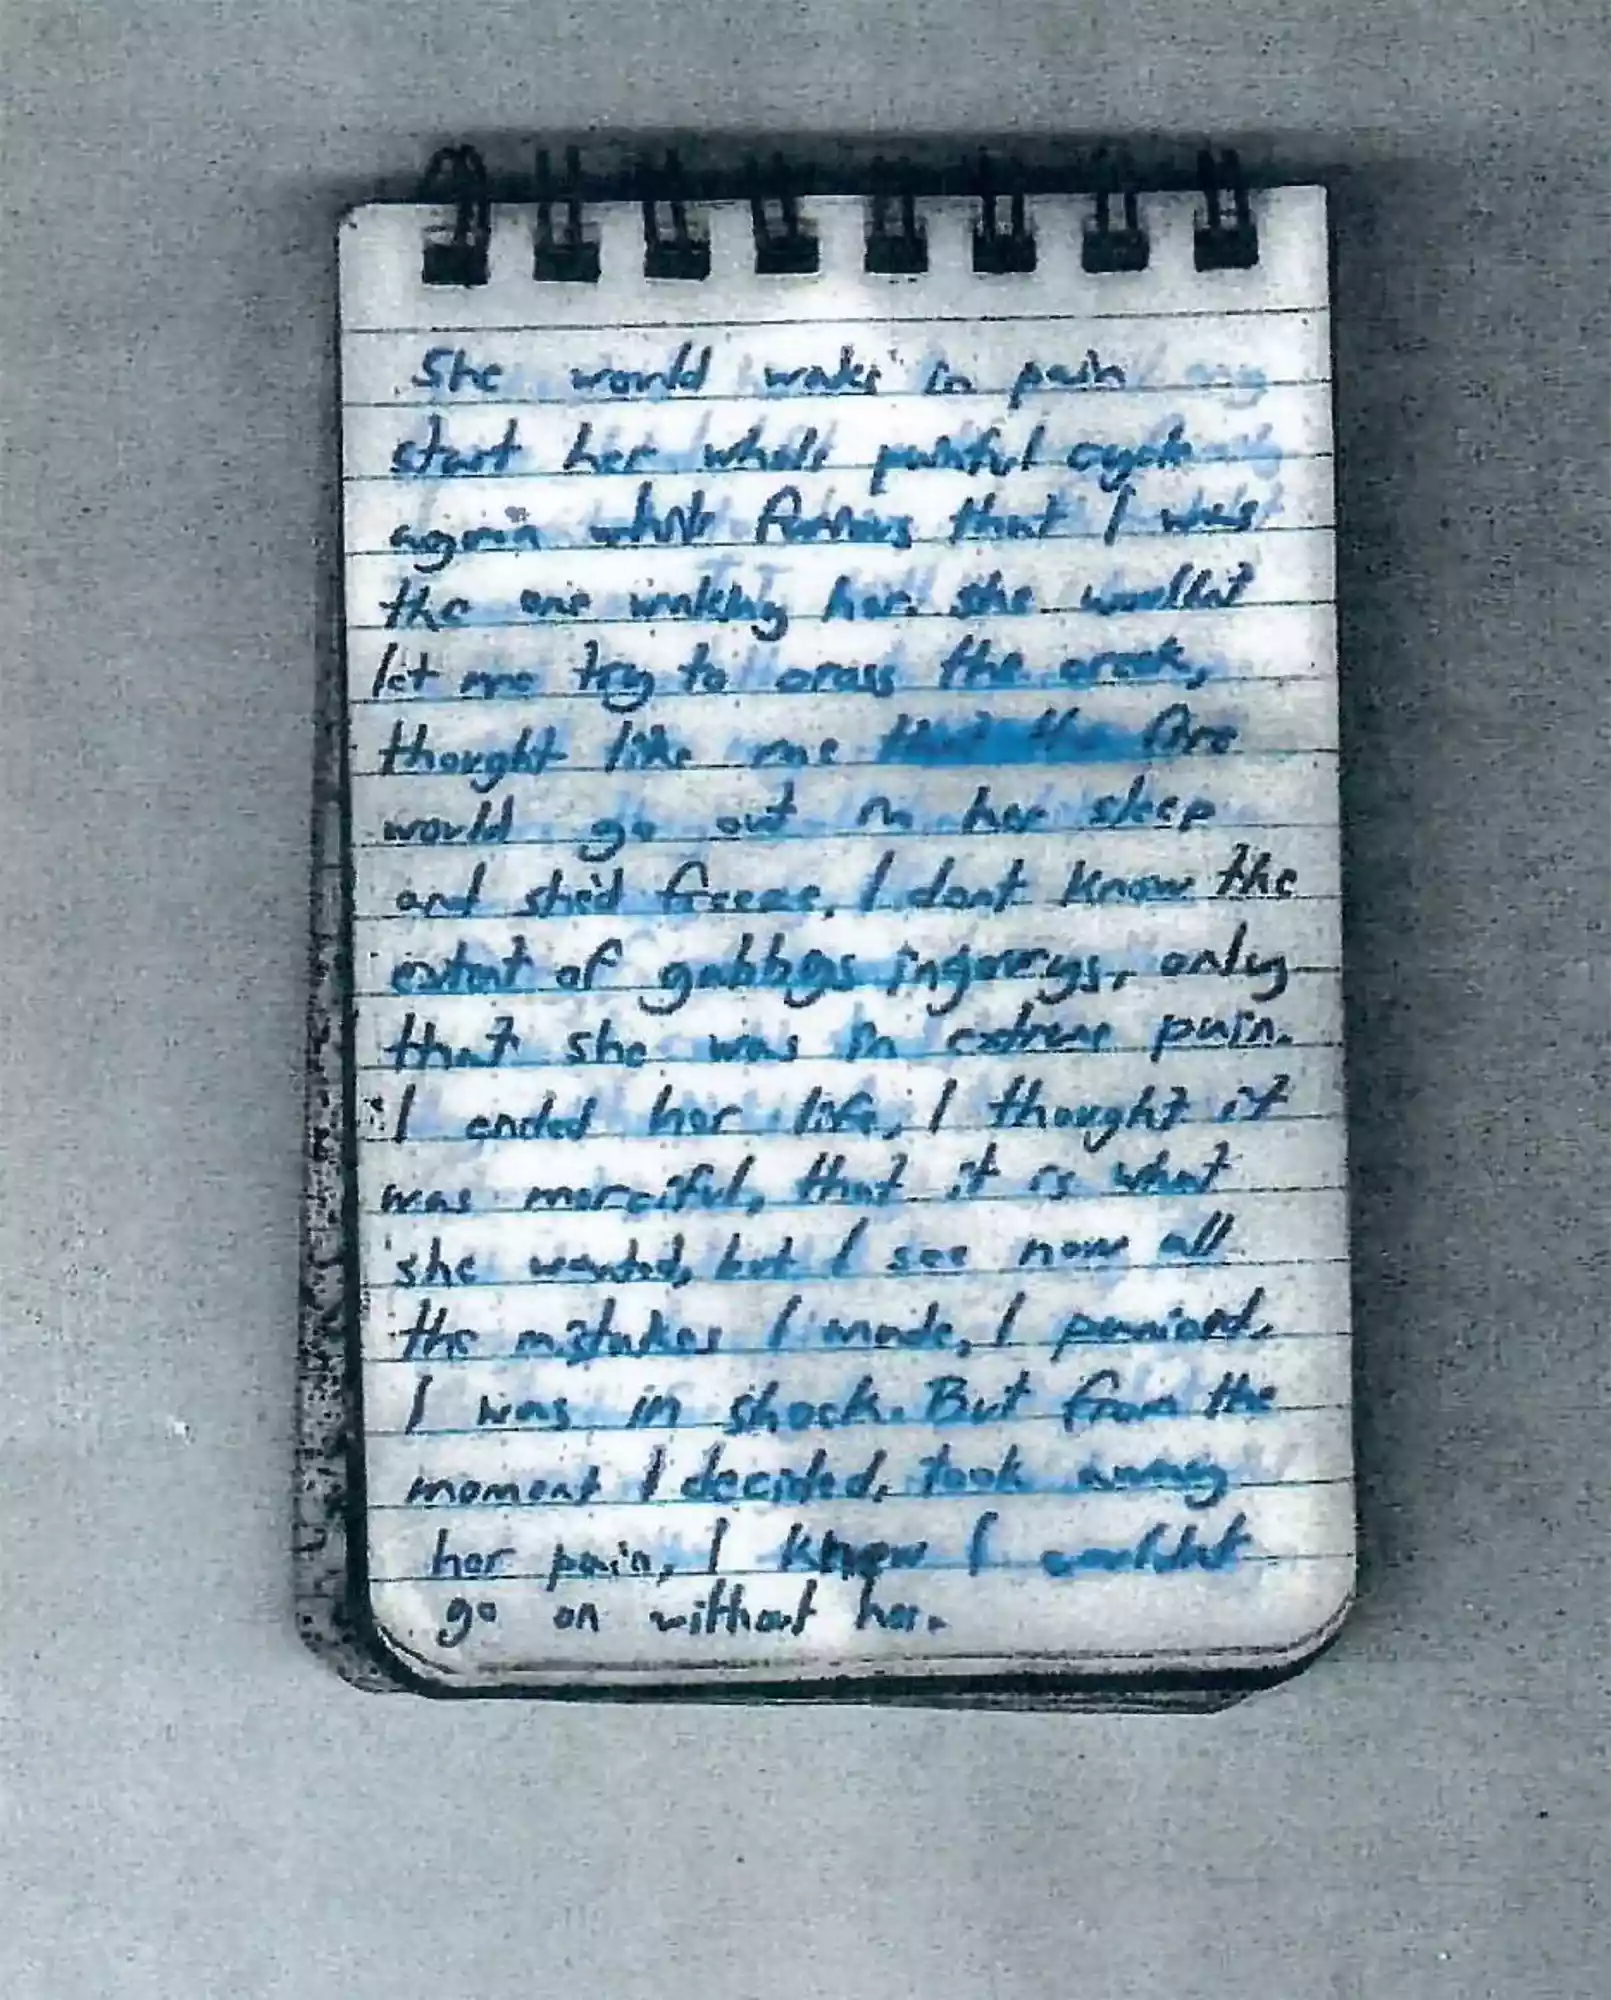 She would wake in pain
start her whole painful cycle
again while furious that I was
the one waking her. She wouldnt
let me try to cross the creek,
thought like me that the fire
would go out in her sleep
and she'd freeze. I dont know the
extent of gabbys ingeurys, only
that she was in extreme pain.
I ended her life, I thought it
was merciful, that it is what
she wanted, but I see now all
the mistakes I made, I panicied,
I was in shock. But from the
moment I decided, took away
her pain, I knew I wouldnt
go on without her.